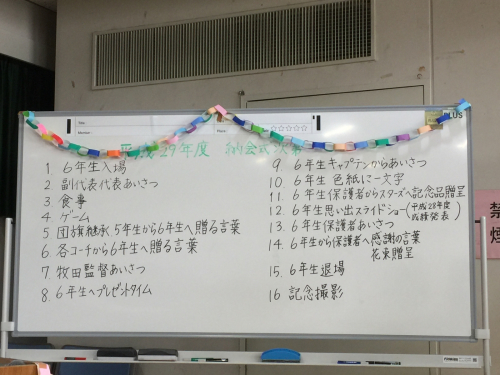 PLUS
平成29年度 納会式次第
1. 6年生入場
2. 副代表代表あいさつ
3 食事
4 ゲーム
5 団旗継承 5年生から6年生へ贈る言葉
6. 各コーチから6年生へ贈る言葉
7. 牧田監督あいさつ
8. 6年生へプレゼントタイム
9. 6年生キャプテンからあいさつ
10. 6年生 色紙に一文字
11. 6年生保護者からスターズへ記念品贈呈
12 6年生思い出スライドショー(平成28年度成績発表)
13 6年生保護者あいさつ
14. 6年生から保護者へ感謝の言葉
花束贈呈
15. 6年生退場
16 記念撮影
禁
煙